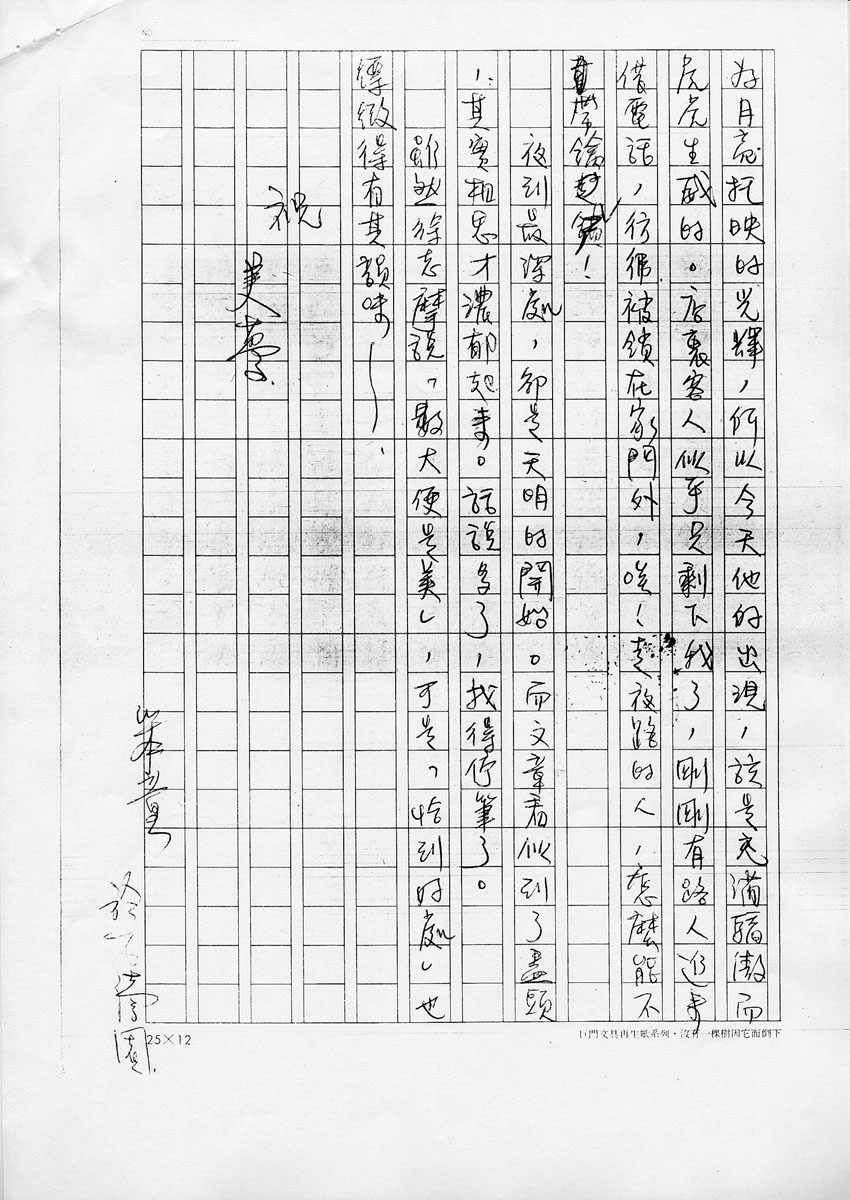 好月亮托映的光輝，所以今天他的出現，該是充滿驕傲而
虎虎生威的。店裏客人似乎只剩下我了，剛剛有路人進來
借電話，彷彿被鎖在家門外，唉！走夜路的人，怎麼能不
帶鑰匙！
夜到最深處，卻是天明的開始。而文章看似到了盡頭
，其實相思才濃郁起來。話說多了，我得停筆了。
雖然徐志摩說「數大便是美」，可是「恰到好處」也
標緻得有其韻味——
祝
美夢
25×12
巨門文具再生紙系列・沒有一棵樹因它而倒下
NO